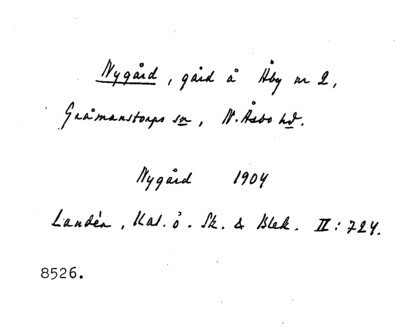 Nygård, gård å Åby nr 2,
Gråmanstorps sn, N. Åsbo hd.
Nygård 1904
Landén, Kat. ö. Sk. & Blek. II: 724.
8526.